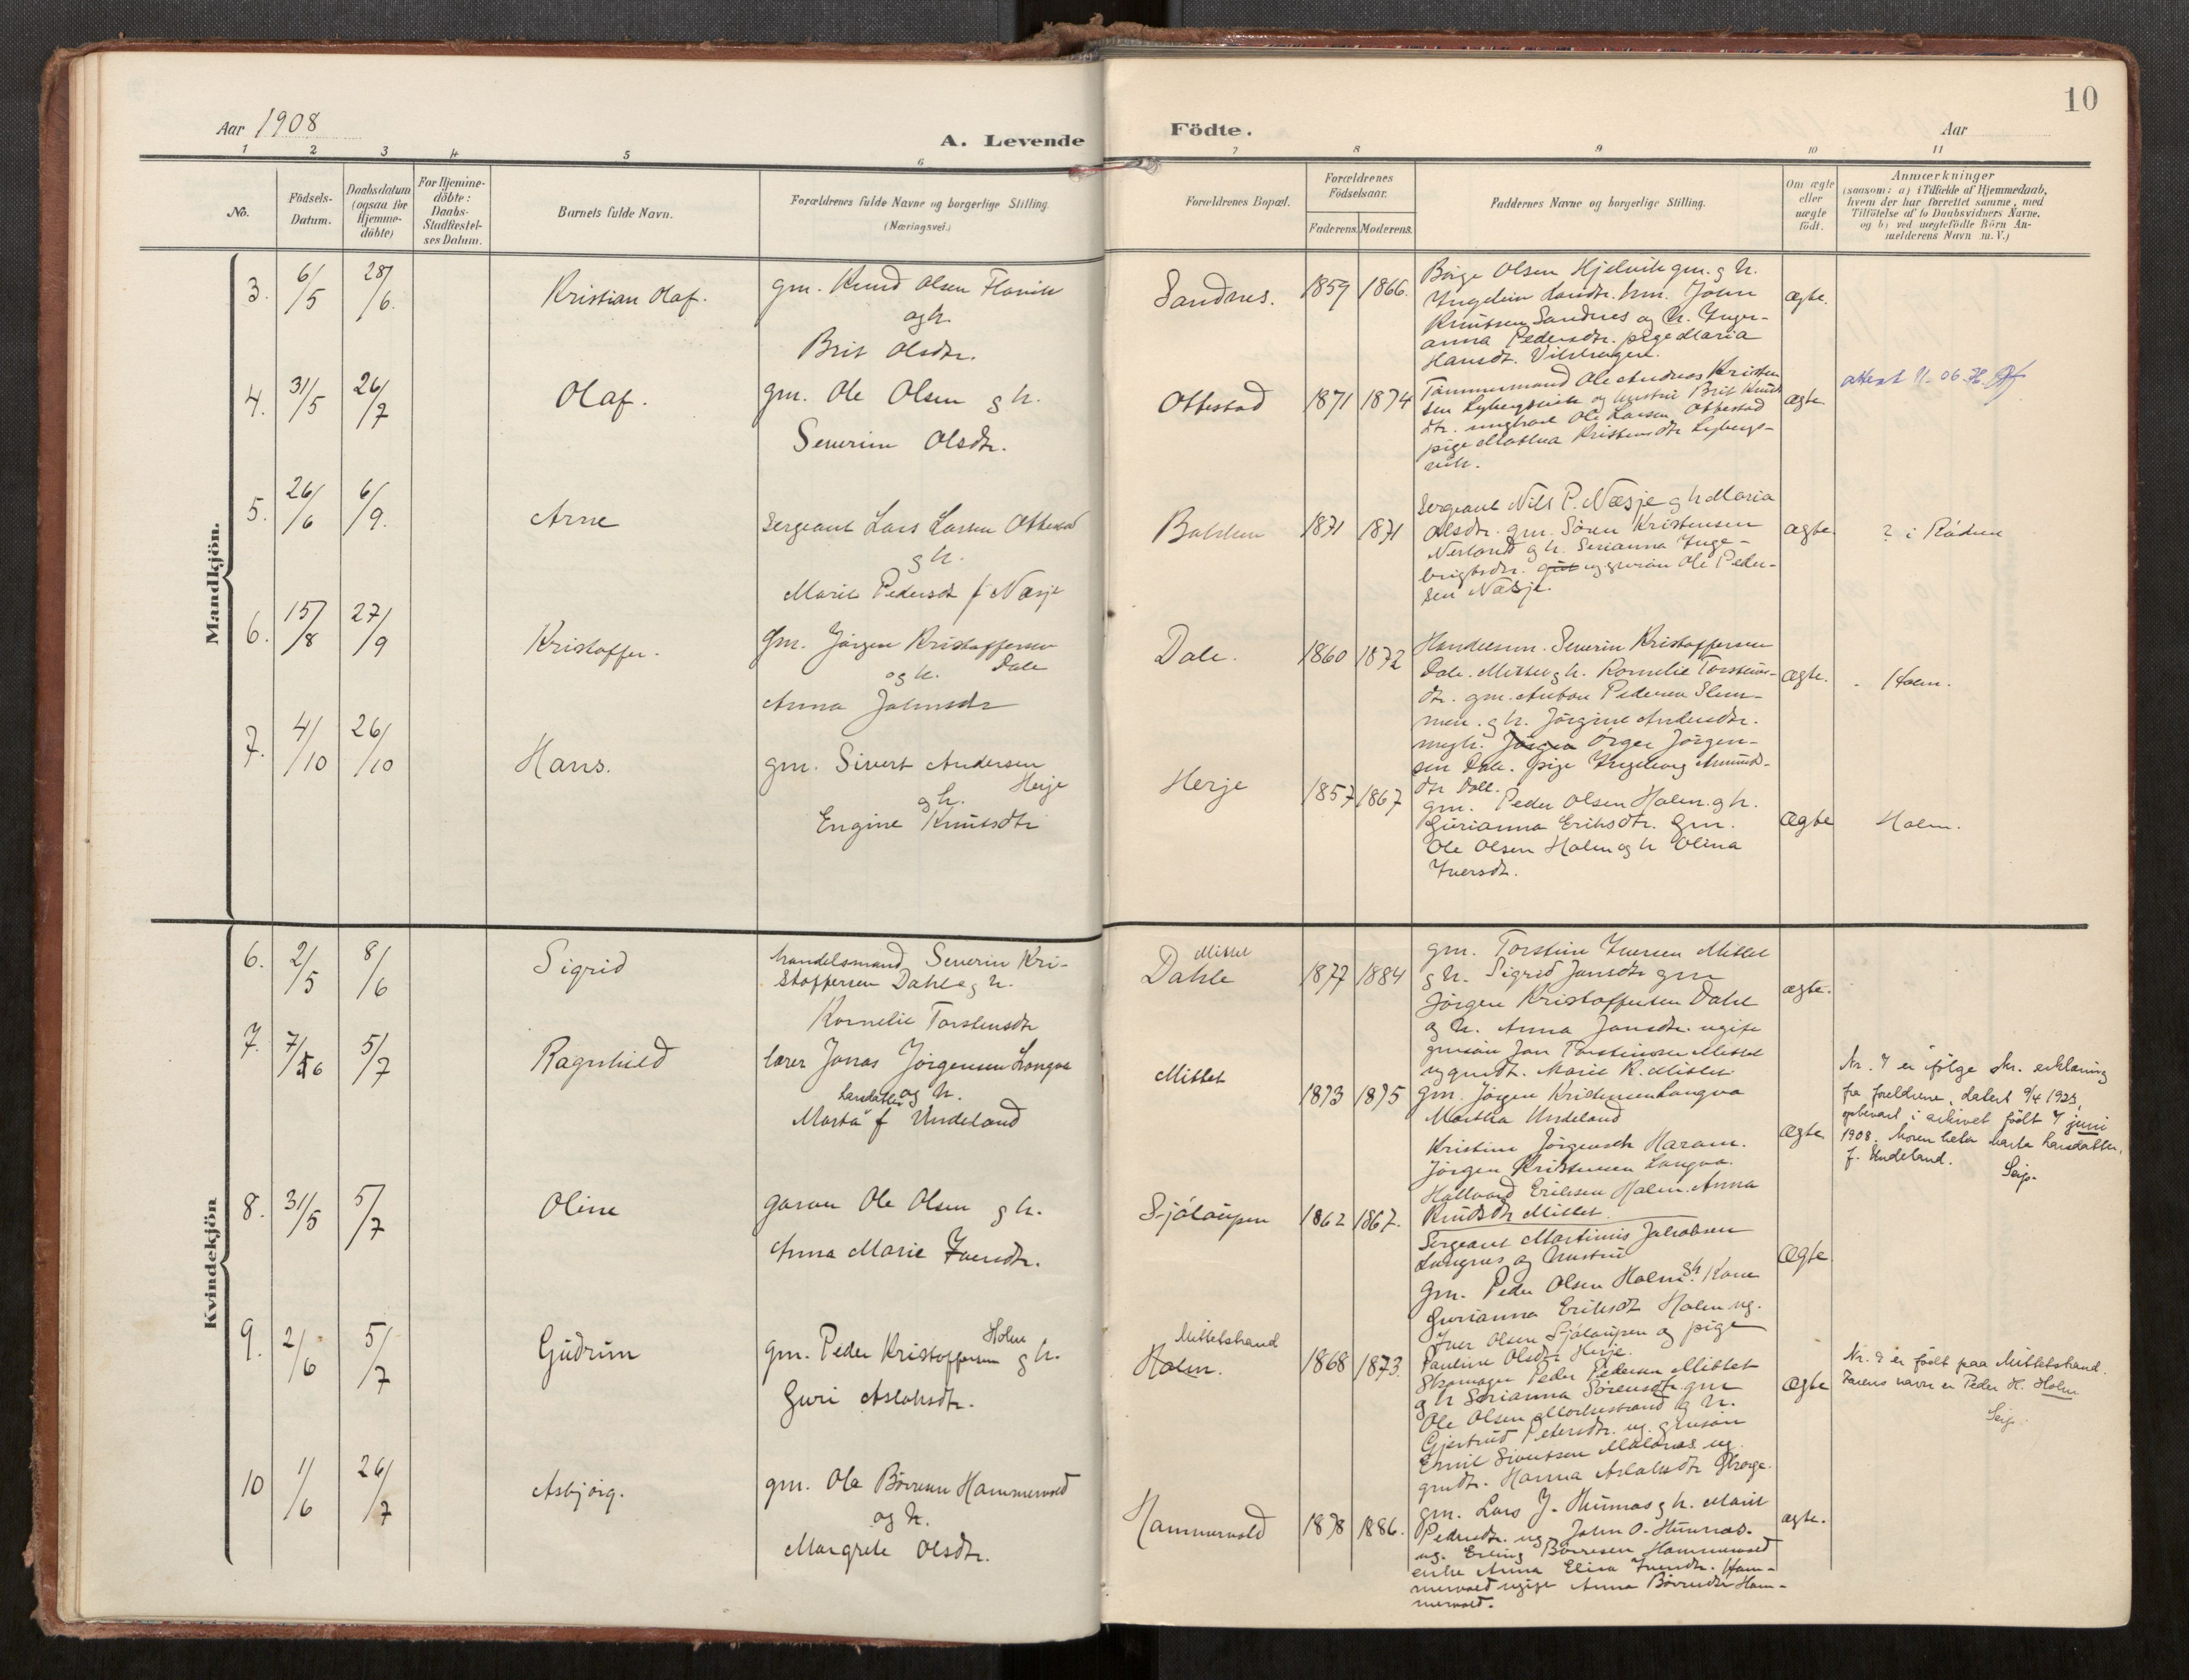 10
Aar 1908
A. Levende
Födte.
Aar
1 2 3 4 5 6 7 8 9 10 11
No.
Födsels-
Datum.
Daabsdatum
(ogsaa for
Hjemme-
döbte)
For Hjemme-
döbte:
Daabs-
Stadfæstel-
ses Datum.
Barnets fulde Navn.
Forældrenes fulde Navne og borgerlige Stilling.
(Næringsvei.)
Forældrenes Bopæl.
Forældrenes
Födselsaar.
Faderens. Moderens.
Faddernes Navne og borgerlige Stilling.
Om ægte
eller
uægte
födt.
Anmærkninger
(saasom: a) i Tilfælde af Hjemmedaab,
hvem der har forrettet samme, med
Tilföielse af to Daabsvidners Navne.
og b) ved uægtefödte Börn An-
melderens Navn m. V.)
Mandkjön.
3. 6/5 28/6. Kristian Olaf.
gm. Knud Olsen Flovik
og h.
Brit Olsdtr.
Sandnes. 1859 1866.
Børge Olsen Hjelvik gm. g h.
Ingeline Larsdtr. hm. John
Knutsen Sandnes og h. Inger-
anna Pedersdtr. pige Maria
Hansdt.
ægte.
4. 31/5 26/7 Olaf.
gm. Ole Olsen g h.
Severine Olsdtr.
Ottestad 1871 1874
Tømmermand Ole Andreas Kristen
sen Lybergsvik og hustru Brit Knuds
dtr. ungkarl Ole Larsen Ottestad
pige Mathea Kristensdtr Lybergs-
vik.
ægte
attest
5. 26/6 6/9. Arne
Sergeant Lars Larsen Ottestad
g h.
Marie Pedersdt f Næsje
Bolsken 1871 1871
Sergeant Nils P. Næsje g h Maria
Olsdtr. gm. Søren Kristensen
Nerland g h. Serianna Inge-
brigtsdtr. ug gmsøn Ole Peder-
sen Næsje.
ægte.
? i Røden
6. 15/8 27/9 Kristoffer.
Gm. Jørgen Kristoffersen
og h. Dale
Anna Johnsdtr
Dale. 1860 1872
Handelsm. Severin Kristoffersen
Dale. Mittet g h. Kornelie Torsteins-
dtr. gm. Anton Pedersen Slem-
men. g h. Jørgine Andersdtr.
ungk. Jørgen Örger Jörgen-
sen Dale. pige Ingeborg Amunds-
dtr Dale.
ægte.
- Holm.
7. 4/10 26/10 Hans.
gm. Sivert Andersen
g h. Herje
Engine Knutsdtr
Herje 1857 1867
gm. Peder Olsen Holm. g h.
Gurianna Eriksdtr. Gm.
Ole Olsen Holm og h Olina
Iversdt.
Ægte
Holm.
Kvindekjön
6. 2/5 8/6 Sigrid
handelsmand Severin Kri-
stoffersen Dahle g h.
Kornelie Torstensdtr
Mittet
Dahle 1877 1884
gm. Torstein Iversen Mittet
g h. Sigrid Jonsdtr gm
Jørgen Kristoffersen Dale
og h. Anna Jonsdtr. ugift
gmsøn Jon Torsteinsen Mittet
ug gmdt. Marie K. Mittet
ægte.
7. 7/6 5/7 Ragnhild
lærer Jonas Jørgensen Longva
Larsdatter og h.
Marta f Undeland
Mittet 1873 1875
gm. Jørgen Kristensen Longva
Martha Undeland
Kristine Jørgensdt Haram.
Jørgen Kristensen Longva.
Hallvard Eriksen Holm. Anna
Knutsdtr Mittet.
Ægte
Nr. 7 er ifølge skr. erklæring
fra foreldrene, datert 9/4 1923,
opbevart i arkivet født 7 juni
1908. Moren heter Marta Larsdatter,
f. Undeland.
Seip.
8. 31/5 5/7 Oline
garver Ole Olsen g h.
Anna Marie Iversdtr.
Sjölaupen 1862 1867.
Sergeant Martinus Jakobsen
Langnes og hustru
gm. Peder Olsen Holm g h. Kone
Gurianna Eriksdt Holm ug.
Iver Olsen Sjölaupen og pige
Pauline Olsdtr Herje.
Ægte.
9. 2/6 5/7 Gudrun
gm. Peder Kristoffersen Holm g h.
Guri Aslaksdtr.
Mittetstrand
Holm. 1868 1873.
Skomager Peder Pedersen Mittet
g h Serianna Sørensdtr. gm
Ole Olsen Morkestrand g h.
Gjertrud Petersdtr. ug. gmsøn
Emil Sivertsen Måldnes ug.
gmdtr. Hanna Aslaksdtr
Ægte
Nr. 9 er født paa Mittetstrand.
Farens navn er Peder K. Holm
Seip.
10 1/6 26/7 Asbjørg.
gm. Ole Børresen Hammervold
og h.
Margrete Olsdtr.
Hammervold 1878 1886.
gm. Lars J. Hunnas g h. Marit
Pedersdtr. ug John O. Hunnas.
ug. Erling Børresen Hammervold
enke Anna Elisa Iversdtr. Ham-
mervold ug pige Anna Børresdtr Ham-
mervold.
ægte.